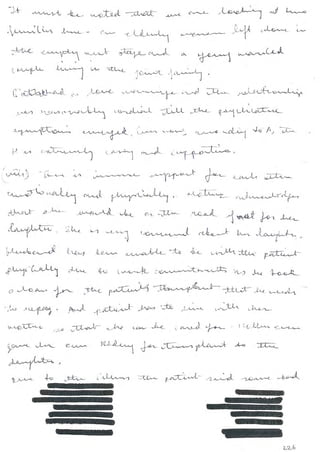 It must be noted that we are looking at two
families here - an elderly woman left alone in
the empty nest stage and a young married
couple living in the joint family.
had a love marriage and the relationship
was reasonably cordial till the psychiatric
symptoms emerged, according to A,
H is extremely caring and supportive.
There is immense support for each other
emotionally and physically. Mother acknowledges
that she would be on the road for her
daughter. She is very concerned about her daughter.
Husband has been unable to be with the patient
physically due to work commitments as he took
a loan for the patient's transplant that he needs
to repay. And patient has to live with her
mother so that she can be cared for. Mother even
gave her own kidney for transplant to the
daughter.
Due to the illness the patient said
226